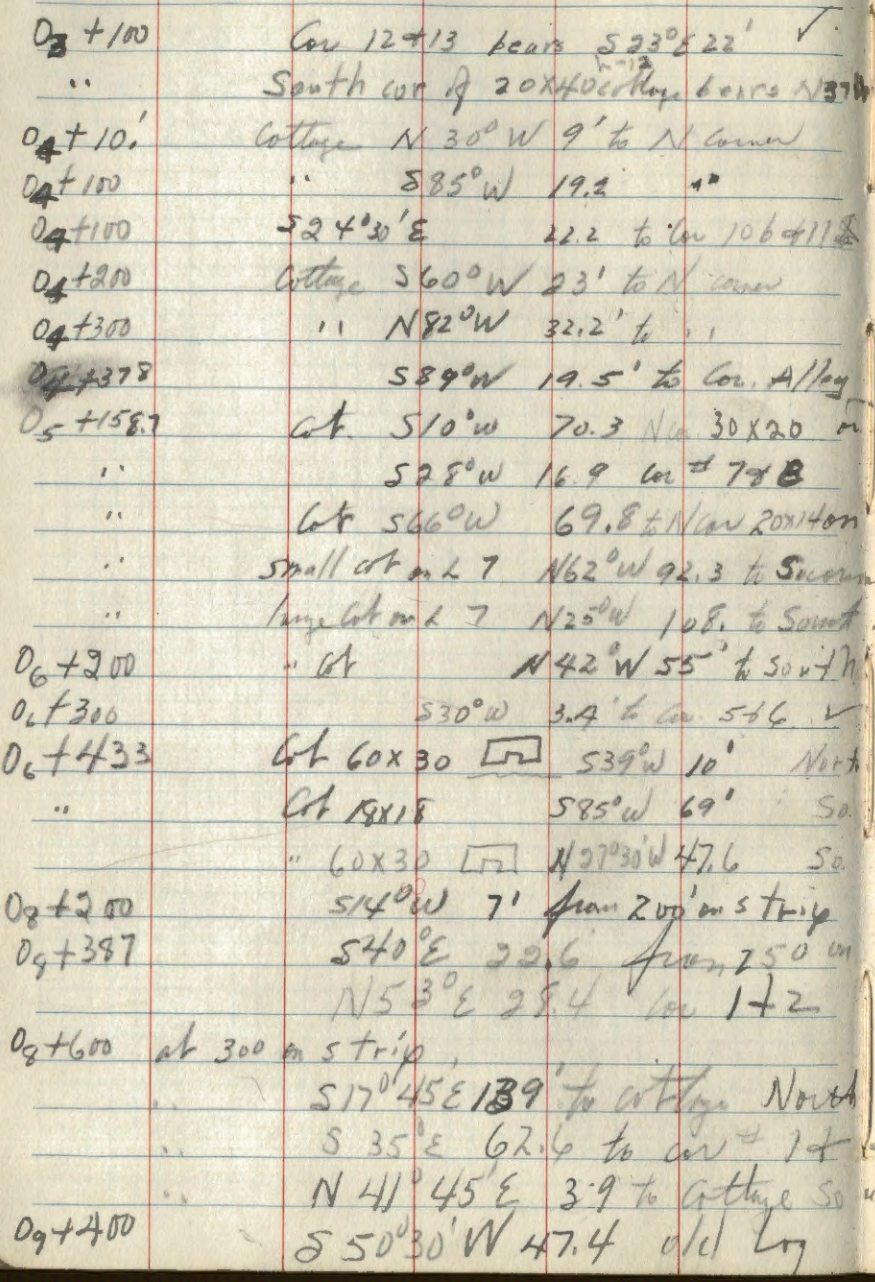 O3 +100 Cor 12+13 bears S23°E 22' ✓
" South cor of 20X40 cottage bears N37
O4+10' Cottage N 30°W 9' to N Corner
O4+100 " S85°W 19.2 " "
O4+100 S24°30'E 22.2 to Cor 10
O4+200 Cottage S60°W 23' to N corner
O4+300 " N82°W 32.2' to " "
O4+378 S89°W 19.5' to Cor. Alley
O5+158.7 Cot. S10°W 70.3 N Cor 30X20 on
" S28°W 16.9 Cor # 7&8
" Cot S66°W 69.8 to N Cor 20X14 on
" Small Cot on L 7 N62°W 92.3 to So
" large Cot on L 7 N25°W 108. to South
O6+200 " Cot N42°W 55' to South
O6+300 S30°W 3.4' to Cor. 5+6 ✓
O6+433 Cot 60X30 S39°W 10' North
" Cot 18X18 S85°W 69' So.
" 60X30 N27°30'W 47.6 So.
O8+200 S14°W 7' from 200' on strip
O8+387 S40°E 22.6 from 250 on
N53°E 28.4 Cor 1+2
O8+600 at 300 on strip,
" S17°45'E 139' to cottage North
" S 35°E 62.6 to cor # 1+
" N 41°45'E 3.9 to Cottage So
O9+400 S 50°30'W 47.4 old Log